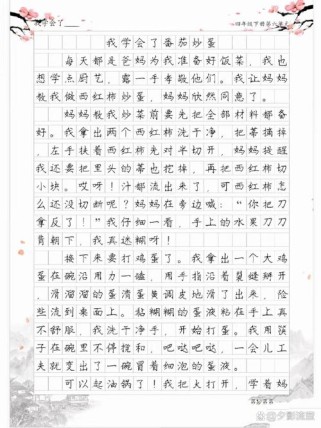 我学会了____”
四年级下册第六单元
我学会了番茄炒蛋
每天都是爸妈为我准备好饭菜，我也
想学点厨艺，露一手孝敬他们。我让妈妈
教我做西红柿炒蛋，妈妈欣然同意了。
妈妈教我炒菜前要先把全部材料都备
好。我拿出两个西红柿洗干净，把蒂摘掉
，左手扶着西红柿先对半切开，妈妈提醒
我还要把里头的蒂也挖掉，再把西红柿切
小块。哎呀！汁都流出来了，可西红柿怎
么还没切断呢？妈妈在旁边喊：“你把刀
拿反了！”我仔细一看，手上的水果刀刀
背朝下，我真迷糊呀！
接下来要打鸡蛋了。我拿出一个大鸡
蛋在碗沿用力一磕，用手指沿着裂缝掰开
，滑溜溜的蛋清蛋黄调皮地滑了出来，险
些流到桌面上。粘糊糊的蛋液粘在手上真
不舒服，我洗干净手，开始打蛋。我用筷
子在碗里不停搅和，吧哒吧哒，一会儿工
夫就变出了一碗冒着细泡的蛋液。
可以起油锅了！我把火打开，学着妈